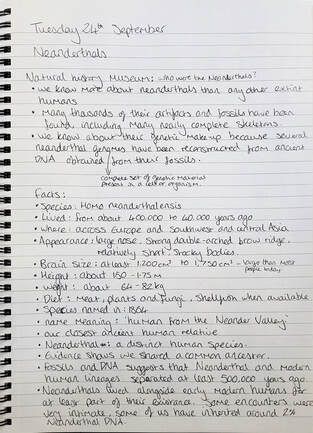 Tuesday 24th September
Neanderthals
Natural history Museum: who were the Neanderthals?
• we know more about neanderthals than any other extinct
humans
• Many thousands of their artifacts and fossils have been
found, including many nearly complete skeletons.
• we know about their genetic make-up because several
neanderthal genomes have been reconstructed from ancient
DNA obtained from their fossils.
complete set of genetic material
present in a cell or organism.
Facts:
• Species: Homo neanderthalensis
• Lived: from about 400,000 to 40,000 years ago
• where: across Europe and southwest and central Asia
• Appearance: large nose, strong double-arched brow ridge,
relatively short, stocky bodies.
• Brain Size: at least 1,200cm³ to 1,750cm³ - larger than most
people today
• Height: about 1.50-1.75m
• weight: about 64-82kg
• Diet: Meat, plants and fungi, shellfish when available
• Species named in: 1864
• name meaning: 'human from the Neander Valley'
• our closest ancient human relative
• Neanderthals: a distinct human species.
• Evidence shows we shared a common ancestor.
• Fossils and DNA suggests that Neanderthal and modern
human lineages separated at least 500,000 years ago.
• Neanderthals lived alongside early modern humans for
at least part of their existence. Some encounters were
very intimate, some of us have inherited around 2%
Neanderthal DNA.